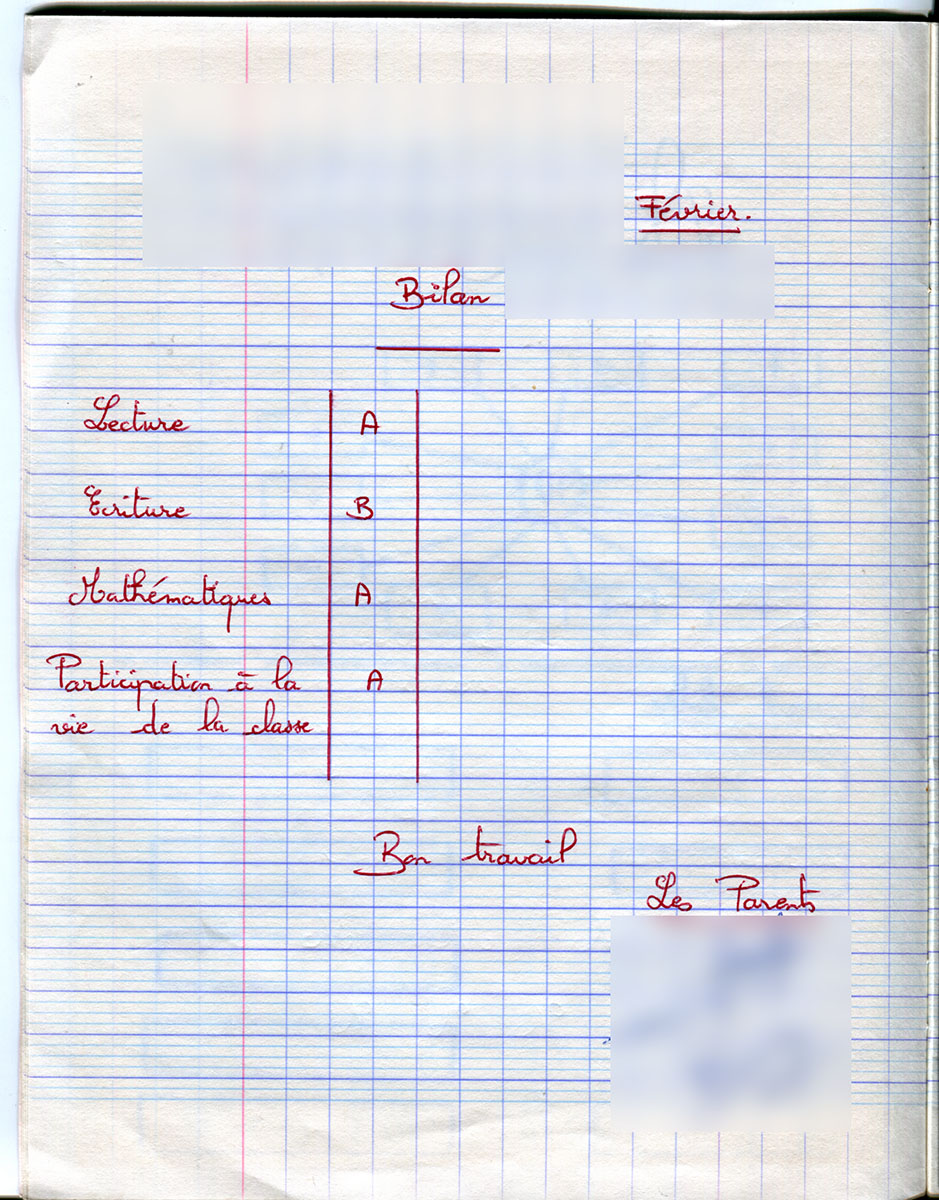 Février.
Bilan
Lecture A
Ecriture B
Mathématiques A
Participation à la A
vie de la classe
Bon travail
Les Parents